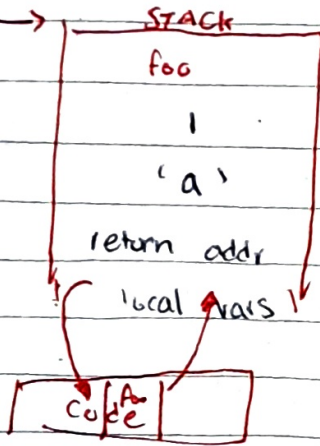 STACK
foo
1
'a'
return addr
local vars
code